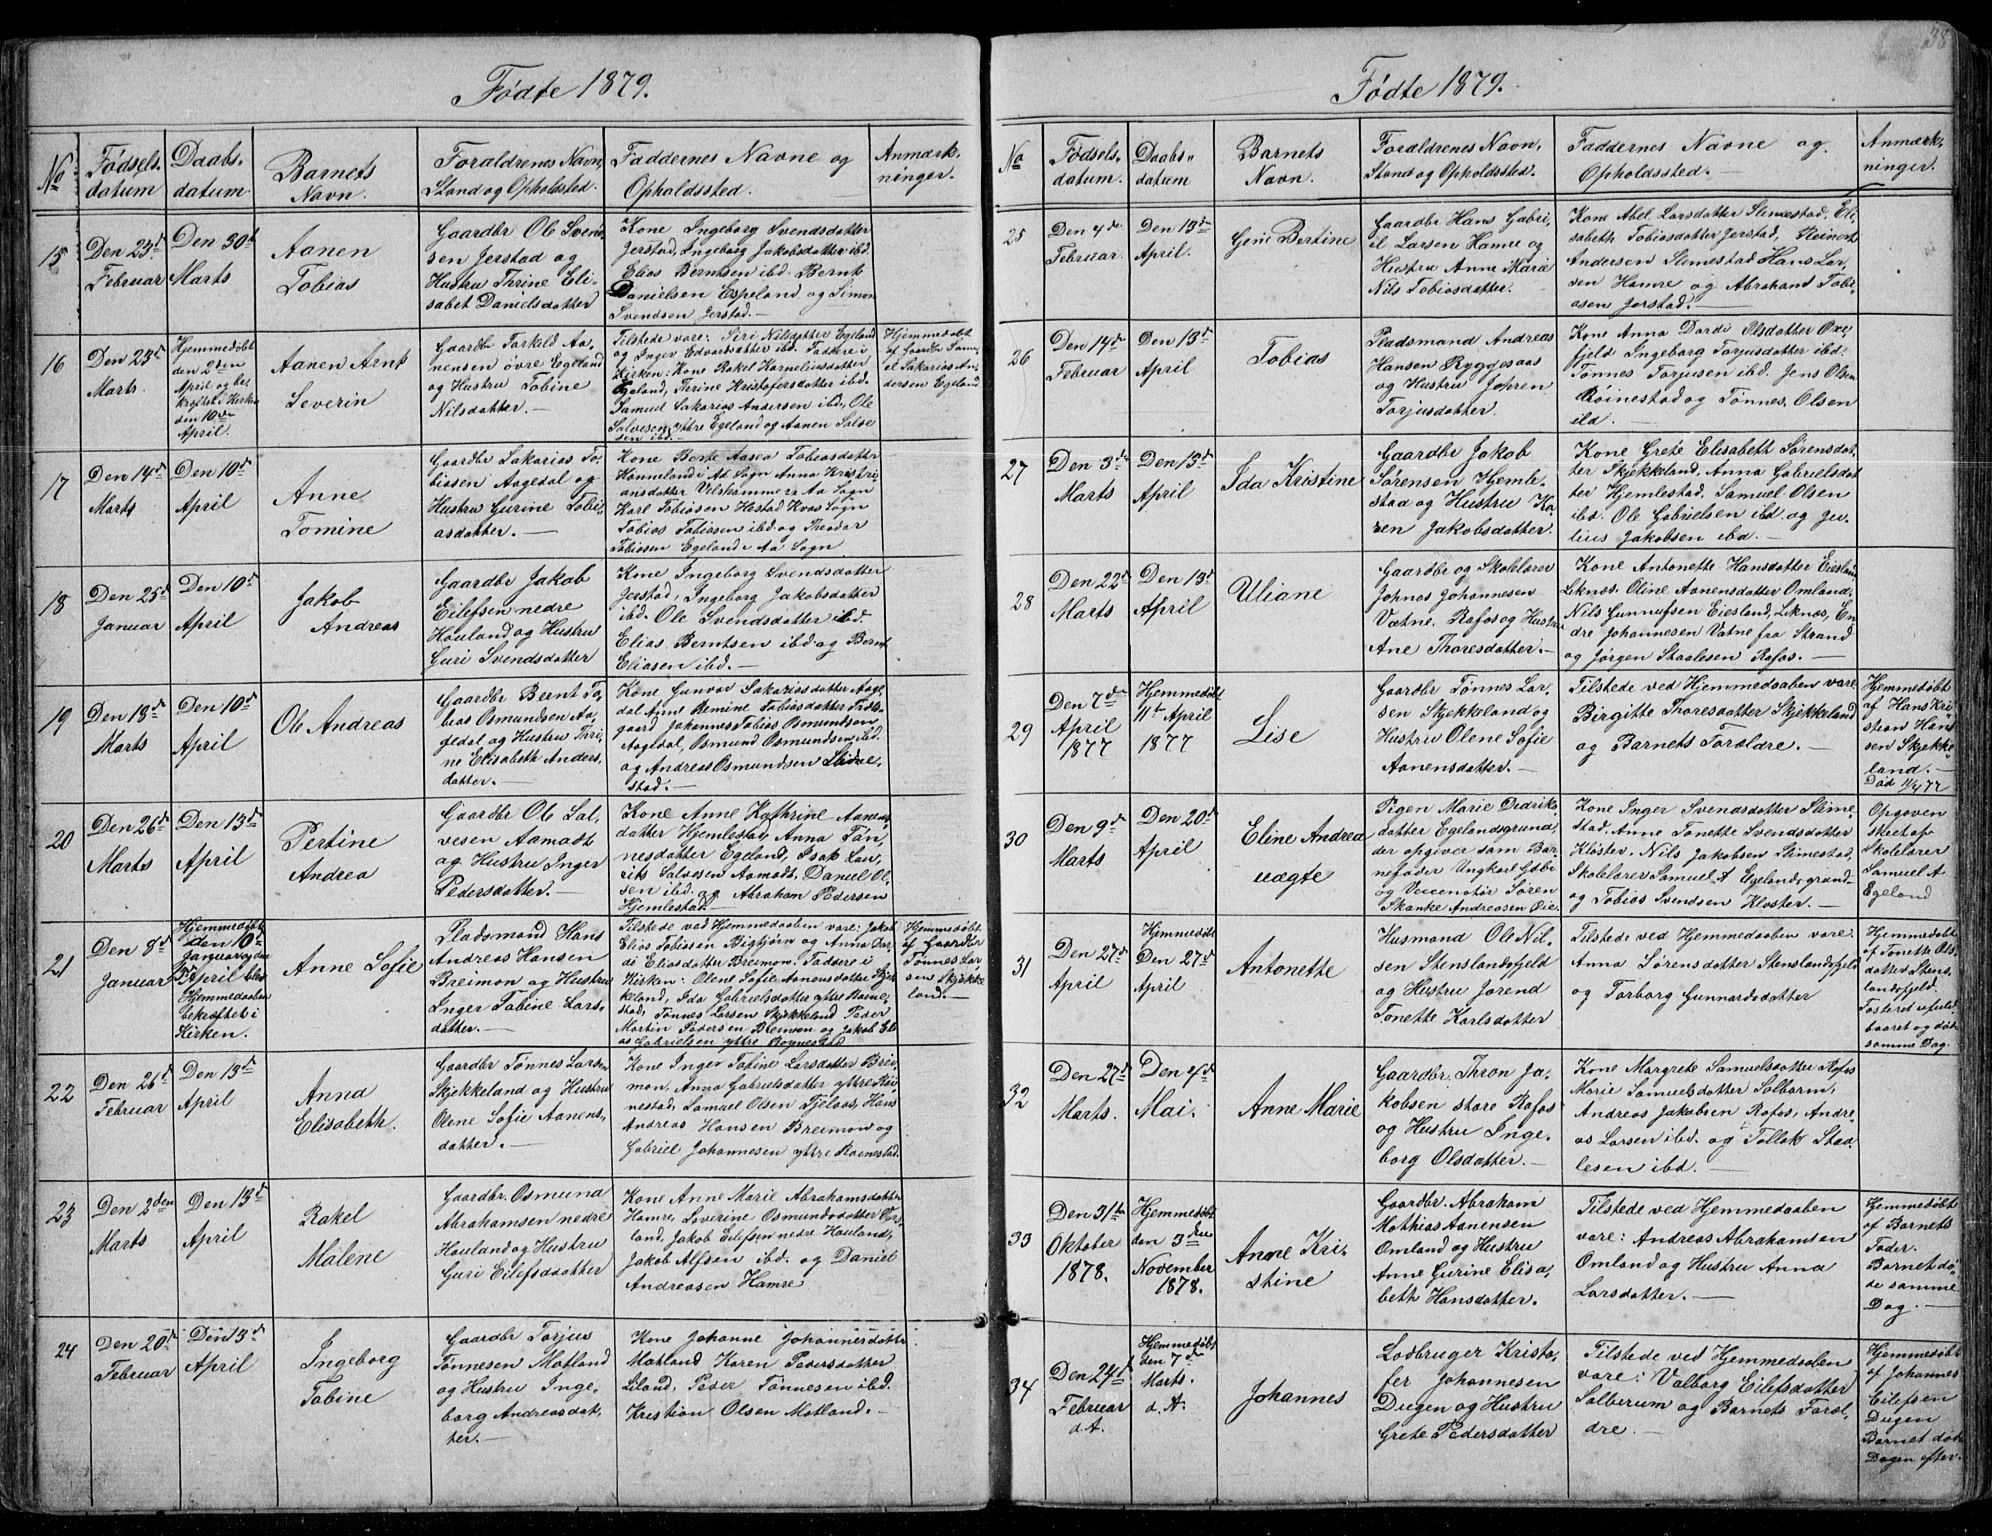 38
Fødte 1879.
No
Fødsels-
datum
Daabs-
datum
Barnets
Navn.
Foraldrenes Navn,
Stand og Opholdsted.
Faddernes Navne og
Opholdssted.
Anmærk-
ninger.
15
Den 23d
Februar
Den 30d
Marts
Aanen
Tobias
Gaardbr Ole Svend-
sen Jerstad og
Hustru Thrine Eli-
sabet Danielsdatter
Kone Ingeborg Svendsdatter
Jerstad, Ingeborg Jakobsdatter ibd.
Elias Berntsen ibd. Bernt
Danielsen Espeland og Simon
Svendsen Jerstad.-
16
Den 23d
Marts.
Hjemmedøbt
den 2den
April og be-
kræftet i Kirken
den 10de
April.
Aanen Arnt
Severin
Gaardbr Torkeld Aa-
nensen øvre Egeland
og Hustru Tobine
Nilsdatter.-
Tilstede vare: Siri Nilsdatter Egeland
og Inger Edvardsdatter ibd. Faddere i
Kirken: Kone Rakel Korneliusdatter
Egeland, Thrine Kristofersdatter ibd.
Samuel Sakarias Andersen ibd, Ole
Salvesen yttre Egeland og Aanen Salve
sen ibd.-
Hjemmedøbt
af Gaardbr Samu-
el Sakarias An-
dersen Egeland.
17
Den 14d
Marts
Den 10d
April
Anne
Tomine
Gaardbr Sakarias To-
biasen Aagedal og
Hustru Gurine Tobi-
asdatter.-
Kone Berte Aasea Tobiasdatter
Hannelandi Aa Sogn Anna Kristi-
ansdatter Velshammer Aa Sogn
Karl Tobiasen Hestad Kvas Sogn
Tobias Tobiasen ibd og Theodor
Tobiasen Egeland i Aa Sogn
18
Den 25d
Januar
Den 10d
April
Jakob
Andreas
Gaardbr Jakob
Eilefsen nedre
Houland og Hustru
Guri Svendsdatter
Kone Ingeborg Svendsdatter
Jerstad, Ingeborg Jakobsdatter
ibd. Ole Svendsdatter ibd.
Elias Berntsen ibd og Bernt
Eliasen ibd.-
19
Den 18d
Marts
Den 10d
April
Ole Andreas
Gaardbr Bernt To-
bias Osmundsen Aa-
gedal og Hustru Thri-
ne Elisabeth Anders-
datter.-
Kone Gunvor Sakariasdatter Aage-
dal Anne Remine Tobiasdatter Fidk-
gaard Johannes Tobias Osmundsen
Aagedal, Osmund Osmundsen ibd.
og Andreas Osmundsen Slime-
stad.-
20
Den 26d
Marts
Den 13d
April
Pertine
Andrea
Gaardbr Ole Sal-
vesen Aamodt
og Hustru Inger
Pedersdatter.-
Kone Anne Kathrine Aanens-
datter Hjemlestad, Anna Tøn-
nesdatter Egeland, Isak Lau-
rits Salvesen Aamodt, Daniel Ol-
sen ibd. og Abraham Pedersen
Hjemlestad.
21
Den 8d
Januar
Hjemmedøbt
den 10d
Januar og den
13d April blev
Hjemmedaaben
bekræftet i
Kirken.
Anne Sofie
Pladsmand Hans
Andreas Hansen
Breimon og Hustru
Inger Tobine Lars-
datter.-
Tilstede ved Hjemmedaaben vare: Jakob
Elias Tobissen Bigtjørn og Anna Dor-
di Eliasdatter Breimon. Faddere i
Kirken: Olene Sofie Aanensdatter Skjek-
keland, Ida Gabrielsdatter yttre Roine-
stad, Tønnes Larsen Skjekkeland Peder
Martin Pedersen Breimon og Jakob Eli
as Gabrielsen yttre Roinestad
Hjemmedøbt
af Gaardbr
Tønnes Lar
sen Skjekke
land.-
22
Den 26d
Februar
Den 13d
April
Anna
Elisabeth.
Gaardbr Tønnes Larsen
Skjekkeland og Hustru
Olene Sofie Aanens-
datter.-
Kone Inger Tobine Larsdatter Brei-
mon, Anna Gabrielsdatter yttre Roi-
nestad, Samuel Olsen Fjelaas, Hans
Andreas Hansen Breimon og
Gabriel Johannesen yttre Roinestad.
23
Den 2den
Marts
Den 13d
April
Rakel
Malene
Gaardbr. Osmund
Abrahamsen nedre
Houland og Hustru
Guri Eilefsdatter
Kone Anne Marie Abrahamsdatter
Hamre, Severine Osmundsdatter Øvs-
land, Jakob Eilefsen nedre Houland,
Jakob Alfsen ibd. og Daniel
Andreasen Hamre
24
Den 20d
Februar
Den 13d
April
Ingeborg
Tobine
Gaardbr Torjus
Tønnesen Møtland
og Hustru Inge-
borg Andreasdat-
ter.-
Kone Johanne Johannesdatter
Møtland Karen Pedersdatter
Liland, Peder Tønnesen ibd.
Kristian Olsen Møtland.-
Fødte 1879.
No
Fødsels-
datum.
Daabs-
datum
Barnets
Navn.
Foraldrenes Navn,
Stand og Opholdsted.
Faddernes Navne og
Opholdssted.
Anmærk-
ninger.
25
Den 4de
Februar.
Den 13d
April.
Gine Bertine
Gaardbr Hans Gabri-
el Larsen Hamre og
Hustru Anne Marie
Nils Tobiasdatter.
Kone Abel Larsdatter Slimestad, Eli-
sabeth Tobiasdatter Jerstad, Reinert
Andersen Slimestad Hans Lar-
sen Hamre og Abraham Tobi-
asen Jerstad.
26
Den 14d
Februar
Den 13d
April
Tobias
Pladsmand Andreas
Hansen Ryggjesaas
og Hustru Johren
Torjusdatter.
Kone Anna Dordi Olsdatter Oxe-
fjeld Ingeborg Torjusdatter ibd.
Tønnes Torjusen ibd. Jens Olsen
Roinestad og Tønnes Olsen
ibd.
27
Den 3d
Marts
Den 13d
April
Ida Kristine
Gaardbr Jakob
Sørensen Hjemle-
stad og Hustru Ka-
ren Jakobsdatter.
Kone Grete Elisabeth Sørensdat-
ter Skjekkeland. Anna Gabrielsdat-
ter Hjemlestad. Samuel Olsen
ibd. Ole Gabrielsen ibd og Ju-
lius Jakobsen ibd.-
28
Den 22d
Marts
Den 13d
April
Uliane
Gaardbr og Skolelærer
Johnas Johannesen
Vatne. Rafos og Hustru
Ane Thoresdatter.-
Kone Antonette Hansdatter Eiesland
Liknes. Oline Aanensdatter Omland,
Nils Gunnufsen Eiesland Liknes, En-
dre Johannesen Vatne fra Strand
og Jørgen Staalesen Rafos.-
29
Den 7de
April
1877
Hjemmedøbt
11te April
1877
Lise
Gaardbr Tønnes Lar-
sen Skjekkeland og
Hustru Olene Sofie
Aanensdatter.-
Tilstede ved Hjemmedaaben vare
Birgitte Thoresdatter Skjekkeland
og Barnets Foraldre.-
Hjemmedøbt
af Hans Kri-
stian Han-
sen Skjekke-
land.-
Død 11/4 77
30
Den 9d
Marts
Den 20d
April
Eline Andrea
uægte
Pigen Marie Didriks-
datter Egelandsgrund,
der opgiver som Bar-
nefader Ungkarl Gjøbi-
og Veccenotør Søren
Skanke Andreasen Øie.
Kone Inger Svendsdatter Slime-
stad. Anne Tonette Svendsdatter
Kloster. Nils Jakobsen Slimestad,
Skolelærer Samuel A Egelandsgrund-
og Tobias Svendsen Kloster.
Opgiven
skeet af
Skolelærer
Samuel A
Egeland
31
Den 27d
April
Hjemmedøbt
Den 27d
April
Antonette
Husmand Ole Nil-
sen Stenslandsfjeld
og Hustru Jorend
Tonette Karlsdatter
Tilstede ved Hjemmedaaben vare
Anna Sørensdatter Stenslandsfjeld
og Torborg Gunnardsdatter
Hjemmedøbt
af Tonette Ols-
datter Stens-
landsfjeld.
Fosteret ufuld-
baaret og døde
samme Dag.
32
Den 27d
Marts.
Den 4de
Mai.
Anne Marie
Gaardbr. Thron Ja-
kobsen store Rafos
og Hustru Inge-
borg Olsdatter.-
Kone Margrete Samuelsdatter Rafos
Marie Samuelsdatter Solbørm,
Andreas Jakobsen Rafos, Andre-
as Larsen ibd. og Tollak Staa-
lesen ibd.
33
Den 31te
Oktober
1878.
Hjemmedøbt
den 3die
November
1878.
Anne Kri-
stine
Gaardbr. Abraham
Mathias Aanensen
Omland og Hustru
Anne Gurine Elisa-
beth Hansdatter.
Tilstede ved Hjemmedaaben
vare: Andreas Abrahamsen
Omland og Hustru Anna
Larsdatter.-
Hjemmedøbt
af Barnets
Fader.
Barnet dø-
de samme
Dag.-
34
Den 24d
Februar
d. A.
Hjemmedøbt
den 7de
Marts.
d. A.
Johannes
Losbruger Kristo-
fer Johannesen
Dugen og Hustru
Grete Pedersdatter
Tilstede ved Hjemmedaaben
vare: Valborg Eilefsdatter
Solberum og Barnets Foræl-
dre.-
Hjemmedøbt
af Johannes
Eilefsen
Dugen
Barnet døde
Dagen efter.